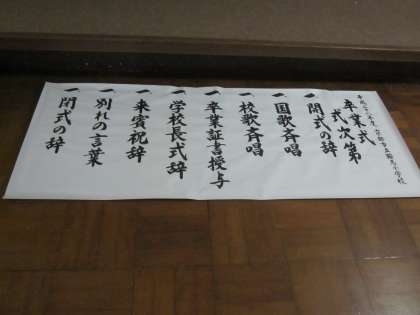 卒業式
式次第
一 開式の辞
一 国歌斉唱
一 校歌斉唱
一 卒業証書授与
一 学校長式辞
一 来賓祝辞
一 別れの言葉
一 閉式の辞